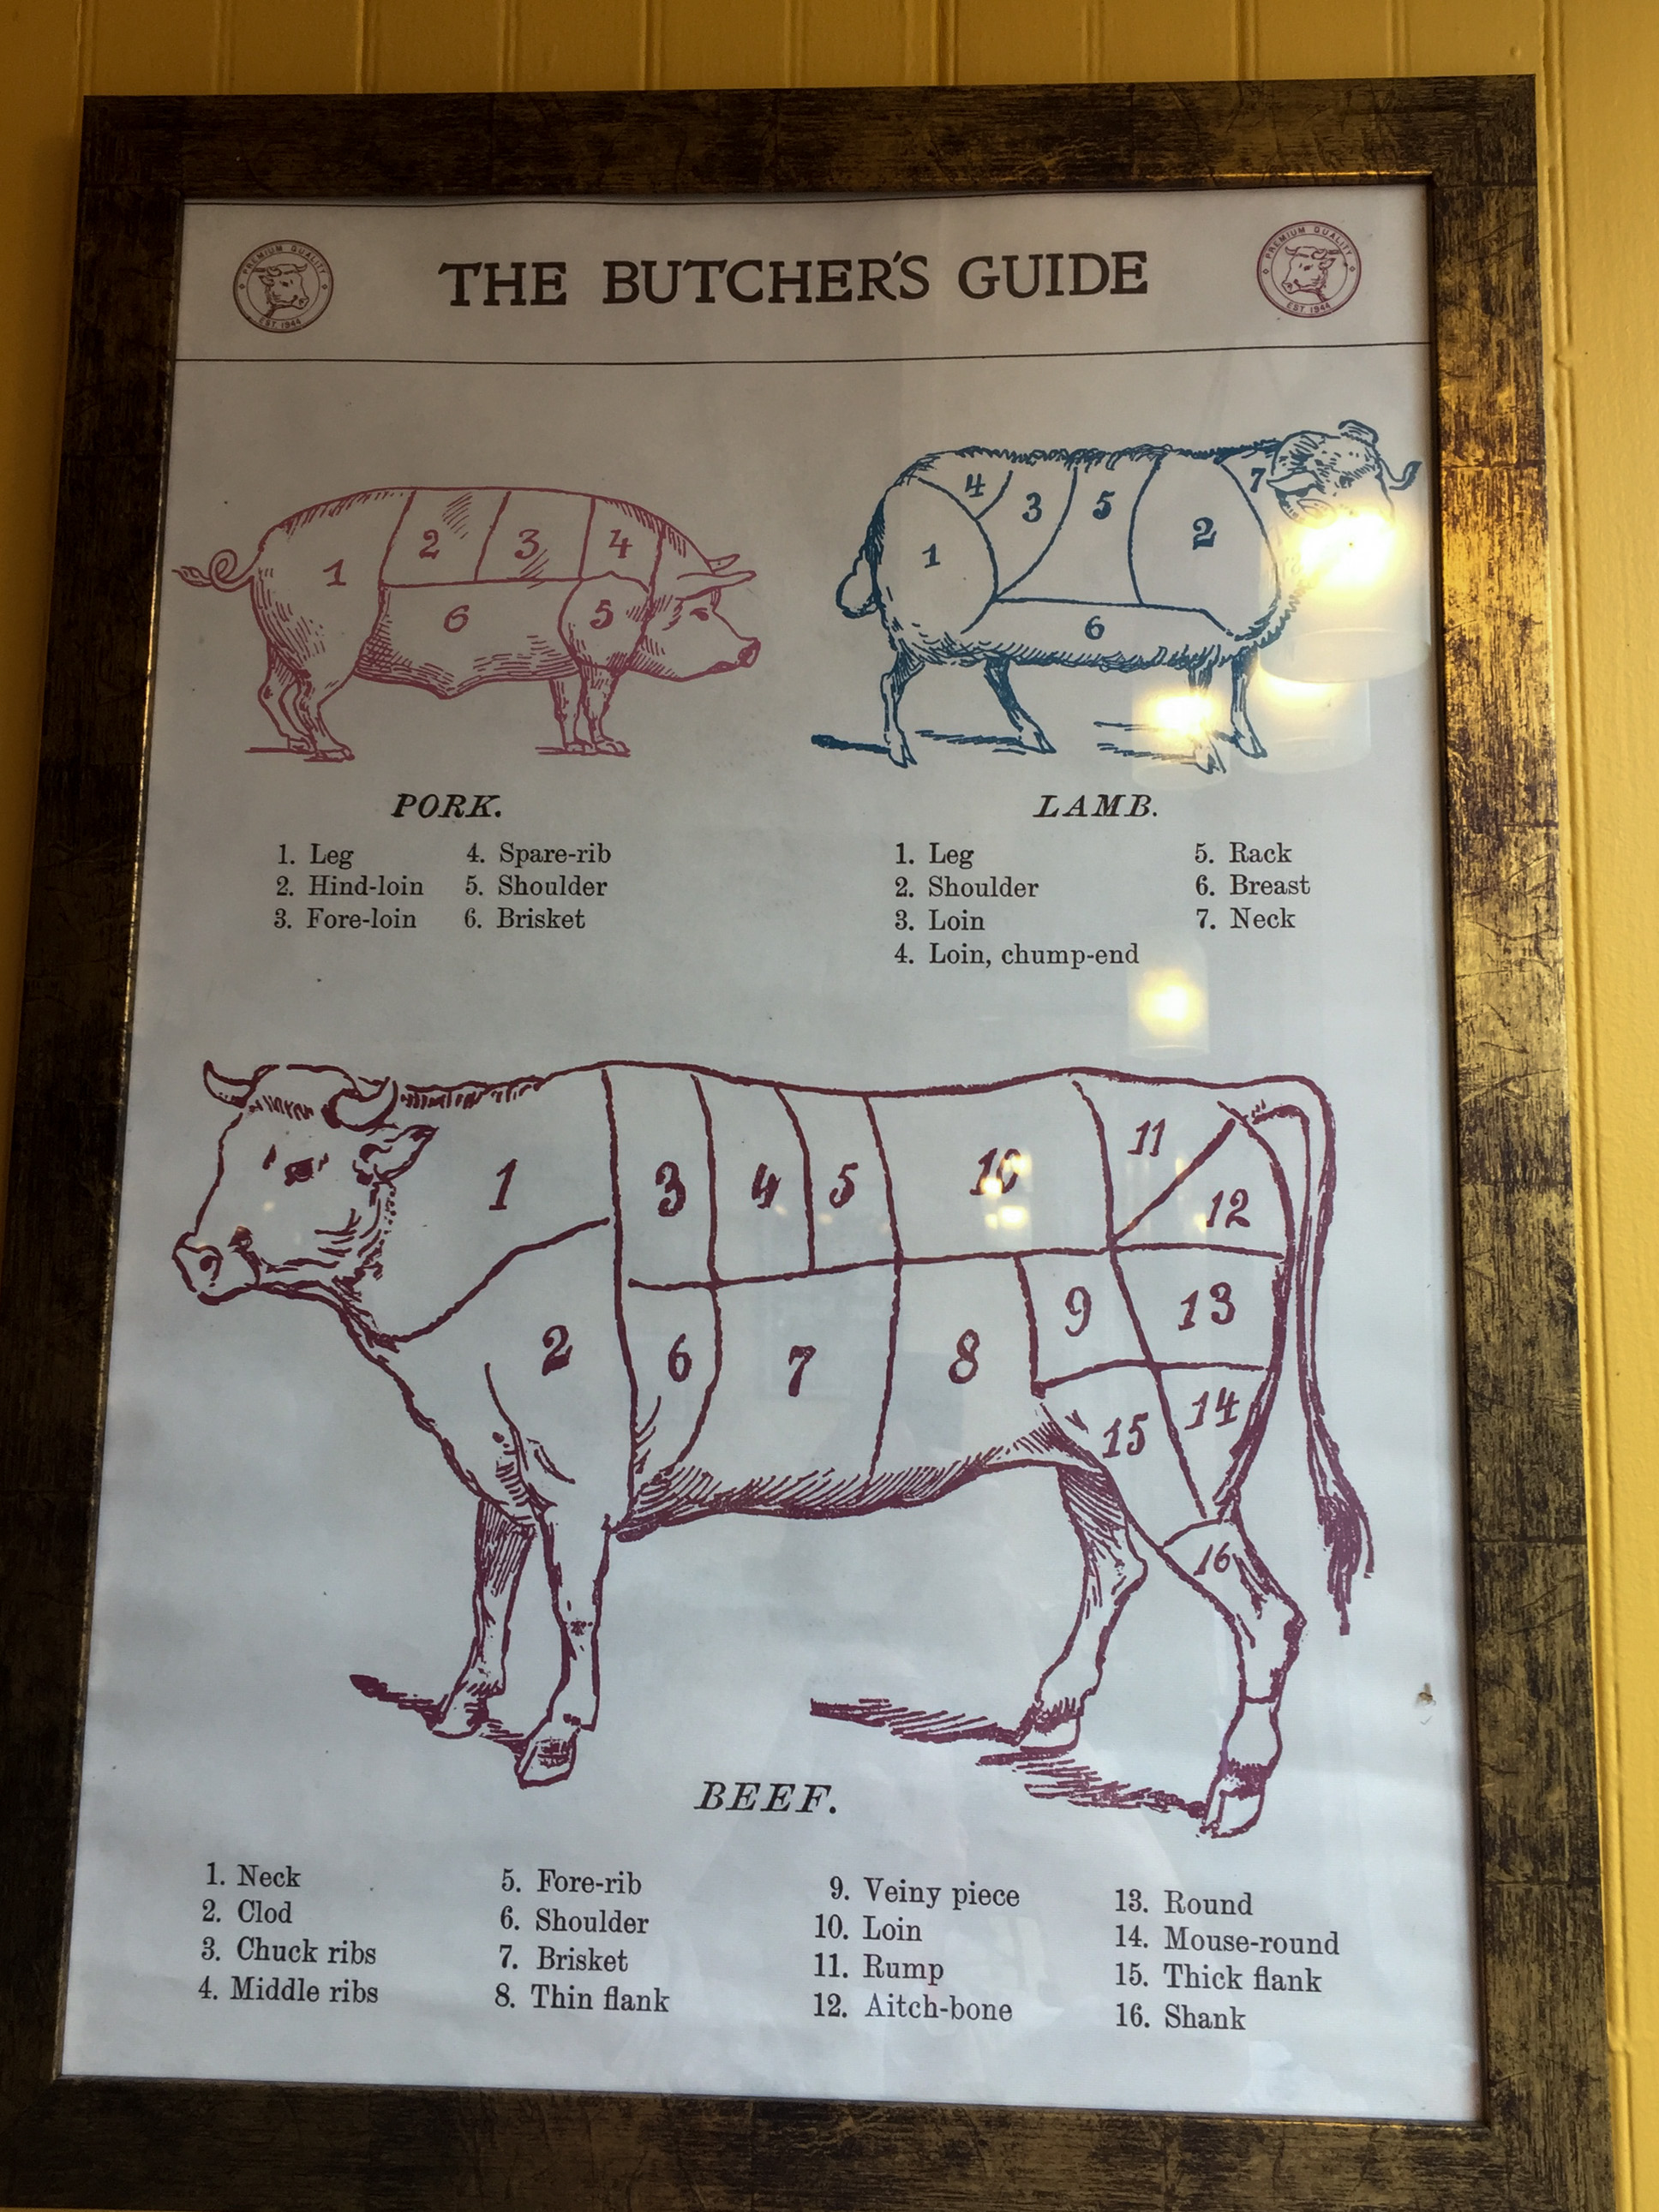 PREMIUM QUALITY
EST. 1944
THE BUTCHER'S GUIDE
PREMIUM QUALITY
EST. 1944
1 2 3 4 5 6
1 4 3 5 2 7 6
PORK.
1. Leg
2. Hind-loin
3. Fore-loin
4. Spare-rib
5. Shoulder
6. Brisket
LAMB.
1. Leg
2. Shoulder
3. Loin
4. Loin, chump-end
5. Rack
6. Breast
7. Neck
1 3 4 5 10 11 12
2 6 7 8 9 13
15 14
16
BEEF.
1. Neck
2. Clod
3. Chuck ribs
4. Middle ribs
5. Fore-rib
6. Shoulder
7. Brisket
8. Thin flank
9. Veiny piece
10. Loin
11. Rump
12. Aitch-bone
13. Round
14. Mouse-round
15. Thick flank
16. Shank